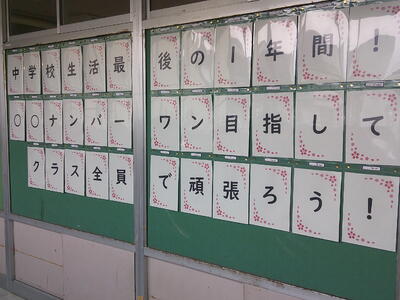 中学校生活最後の1年間！
○○ナンバーワン目指して
クラス全員で頑張ろう！